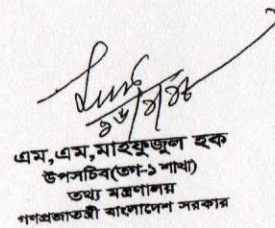 এম,এম,মাহফুজুল হক
উপসচিব(তপ্র-১ শাখা)
তথ্য মন্ত্রণালয়
গণপ্রজাতন্ত্রী বাংলাদেশ সরকার